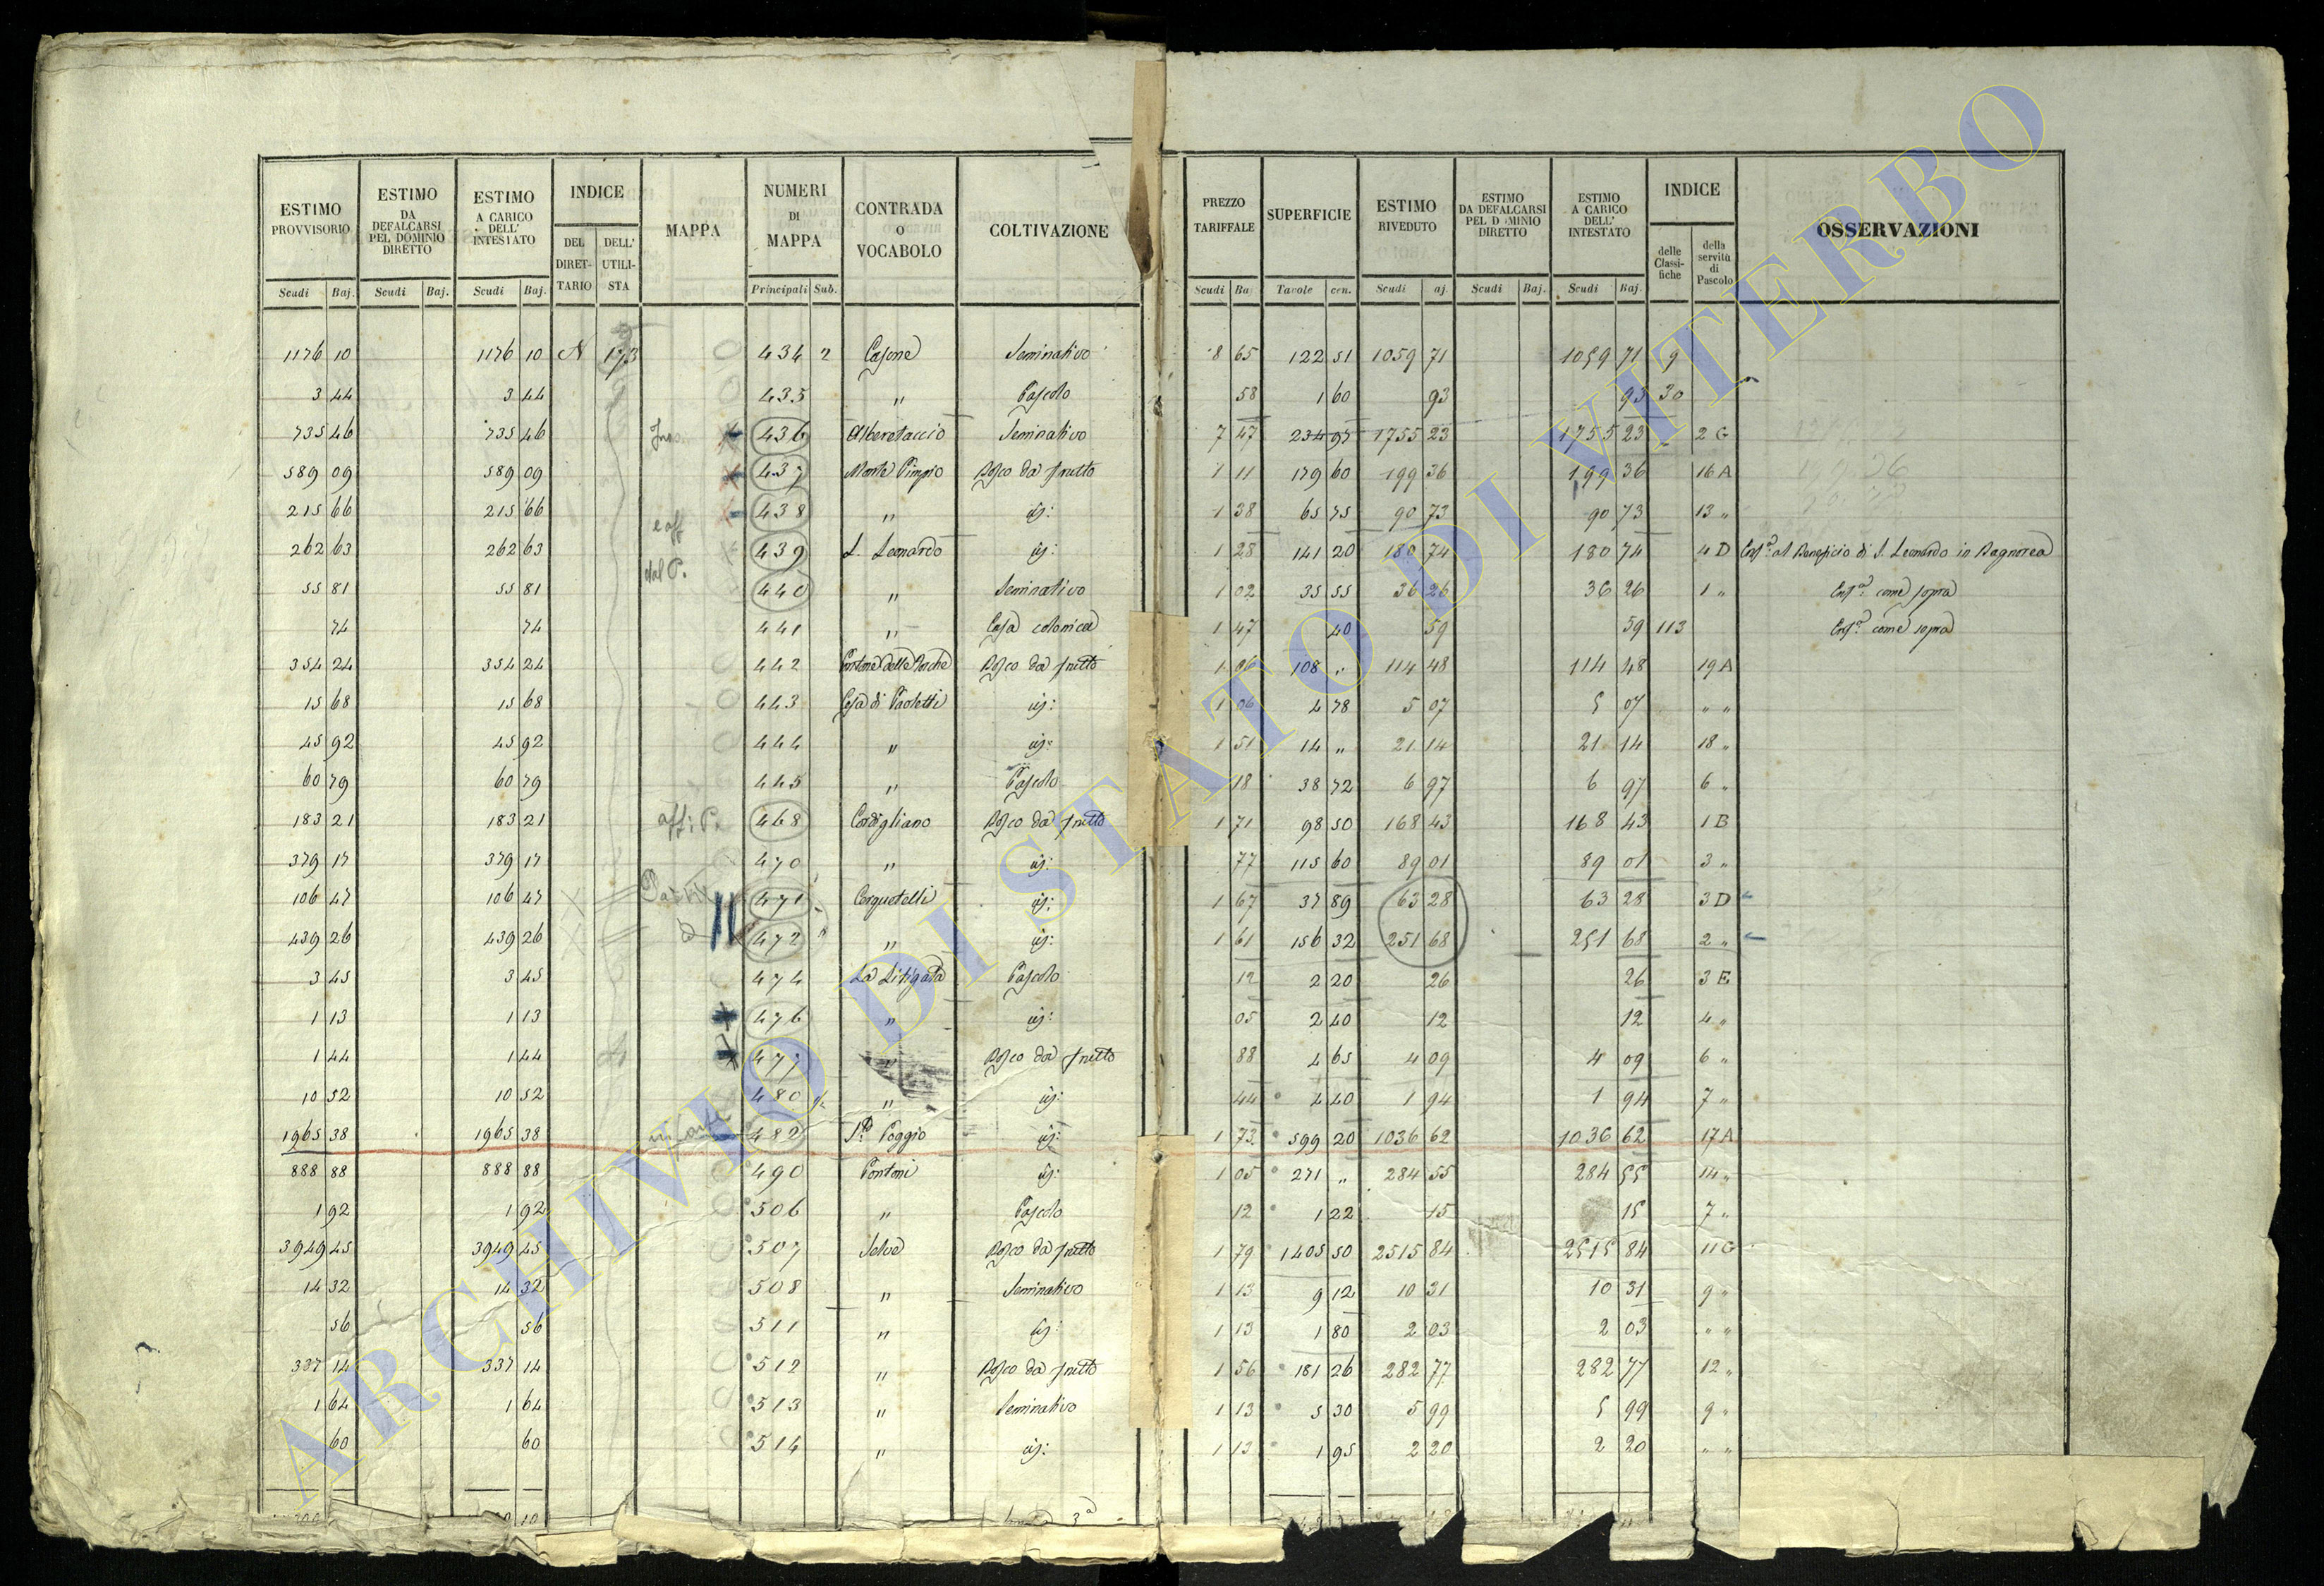 ESTIMO PROVVISORIO | ESTIMO DA DEFALCARSI PEL DOMINIO DIRETTO | ESTIMO A CARICO DELL' INTESTATO | INDICE | MAPPA | NUMERI DI MAPPA | CONTRADA O VOCABOLO | COLTIVAZIONE | PREZZO TARIFFALE | SUPERFICIE | ESTIMO RIVEDUTO | ESTIMO DA DEFALCARSI PEL D MINIO DIRETTO | ESTIMO A CARICO DELL' INTESTATO | INDICE | OSSERVAZIONI
DEL DIRETTARIO | DELL' UTILISTA | delle Classifiche | della servitù di Pascolo
Scudi | Baj. | Scudi | Baj. | Scudi | Baj. | Principali | Sub. | Scudi | Ba | Tavole | cen. | Scudi | aj. | Scudi | Baj. | Scudi | Baj.
1176 10 | 1176 10 | N | 173 | 434 2 | Casone | Seminativo | 8 65 | 122 51 | 1059 71 | 1059 71 | 9
3 44 | 3 44 | 435 | " | Pascolo | 58 | 1 60 | 93 | 93 | 30
735 46 | 735 46 | 436 | Alberetaccio | Seminativo | 7 47 | 234 97 | 1755 23 | 1755 23 | 2 G
589 09 | 589 09 | 437 | Monte Pimpio | Bosco da frutto | 1 11 | 179 60 | 199 36 | 199 36 | 16 A
215 66 | 215 66 | 438 | " | | 1 38 | 65 75 | 90 73 | 90 73 | 13 "
262 63 | 262 63 | 439 | S. Leonardo | | 1 28 | 141 20 | 180 74 | 180 74 | 4 D | al Beneficio di S. Leonardo in Bagnorea
dal P.
55 81 | 55 81 | 440 | " | Seminativo | 1 02 | 35 55 | 36 26 | 36 26 | 1 " | come sopra
74 | 74 | 441 | " | Casa colonica | 1 47 | 40 | 59 | 59 | 113 | come sopra
354 24 | 354 24 | 442 | | Bosco da frutto | 1 06 | 108 " | 114 48 | 114 48 | 19 A
15 68 | 15 68 | 443 | Casa di Paoletti | | 1 06 | 4 78 | 5 07 | 5 07 | " "
45 92 | 45 92 | 444 | " | | 1 51 | 14 " | 21 14 | 21 14 | 18 "
60 79 | 60 79 | 445 | " | Pascolo | 18 | 38 72 | 6 97 | 6 97 | 6 "
183 21 | 183 21 | 468 | Cordigliano | Bosco da frutto | 1 71 | 98 50 | 168 43 | 168 43 | 1 B
379 17 | 379 17 | 470 | " | | 77 | 115 60 | 89 01 | 89 01 | 3 "
106 47 | 106 47 | 471 | Cerquetelli | | 1 67 | 37 89 | 63 28 | 63 28 | 3 D
439 26 | 439 26 | 472 | " | | 1 61 | 156 32 | 251 68 | 251 68 | 2 "
3 45 | 3 45 | 474 | La Litigata | Pascolo | 12 | 2 20 | 26 | 26 | 3 E
1 13 | 1 13 | 476 | " | | 05 | 2 40 | 12 | 12 | 4 "
1 44 | 1 44 | 477 | | Bosco da frutto | 88 | 4 65 | 4 09 | 4 09 | 6 "
10 52 | 10 52 | 480 | " | | 44 | 4 40 | 1 94 | 1 94 | 7 "
1965 38 | 1965 38 | 482 | Poggio | | 1 73 | 599 20 | 1036 62 | 1036 62 | 17 A
888 88 | 888 88 | 490 | Pontoni | | 1 05 | 271 " | 284 55 | 284 55 | 14 "
1 92 | 1 92 | 506 | " | Pascolo | 12 | 1 22 | 15 | 15 | 7 "
3949 45 | 3949 45 | 507 | Selve | Bosco da frutto | 1 79 | 1405 50 | 2515 84 | 2515 84 | 11 G
14 32 | 14 32 | 508 | " | Seminativo | 1 13 | 9 12 | 10 31 | 10 31 | 9 "
56 | 56 | 511 | " | | 1 13 | 1 80 | 2 03 | 2 03 | " "
337 14 | 337 14 | 512 | " | Bosco da frutto | 1 56 | 181 26 | 282 77 | 282 77 | 12 "
1 64 | 1 64 | 513 | " | Seminativo | 1 13 | 5 30 | 5 99 | 5 99 | 9 "
60 | 60 | 514 | " | | 1 13 | 1 95 | 2 20 | 2 20 | " "
ARCHIVIO DI STATO DI VITERBO